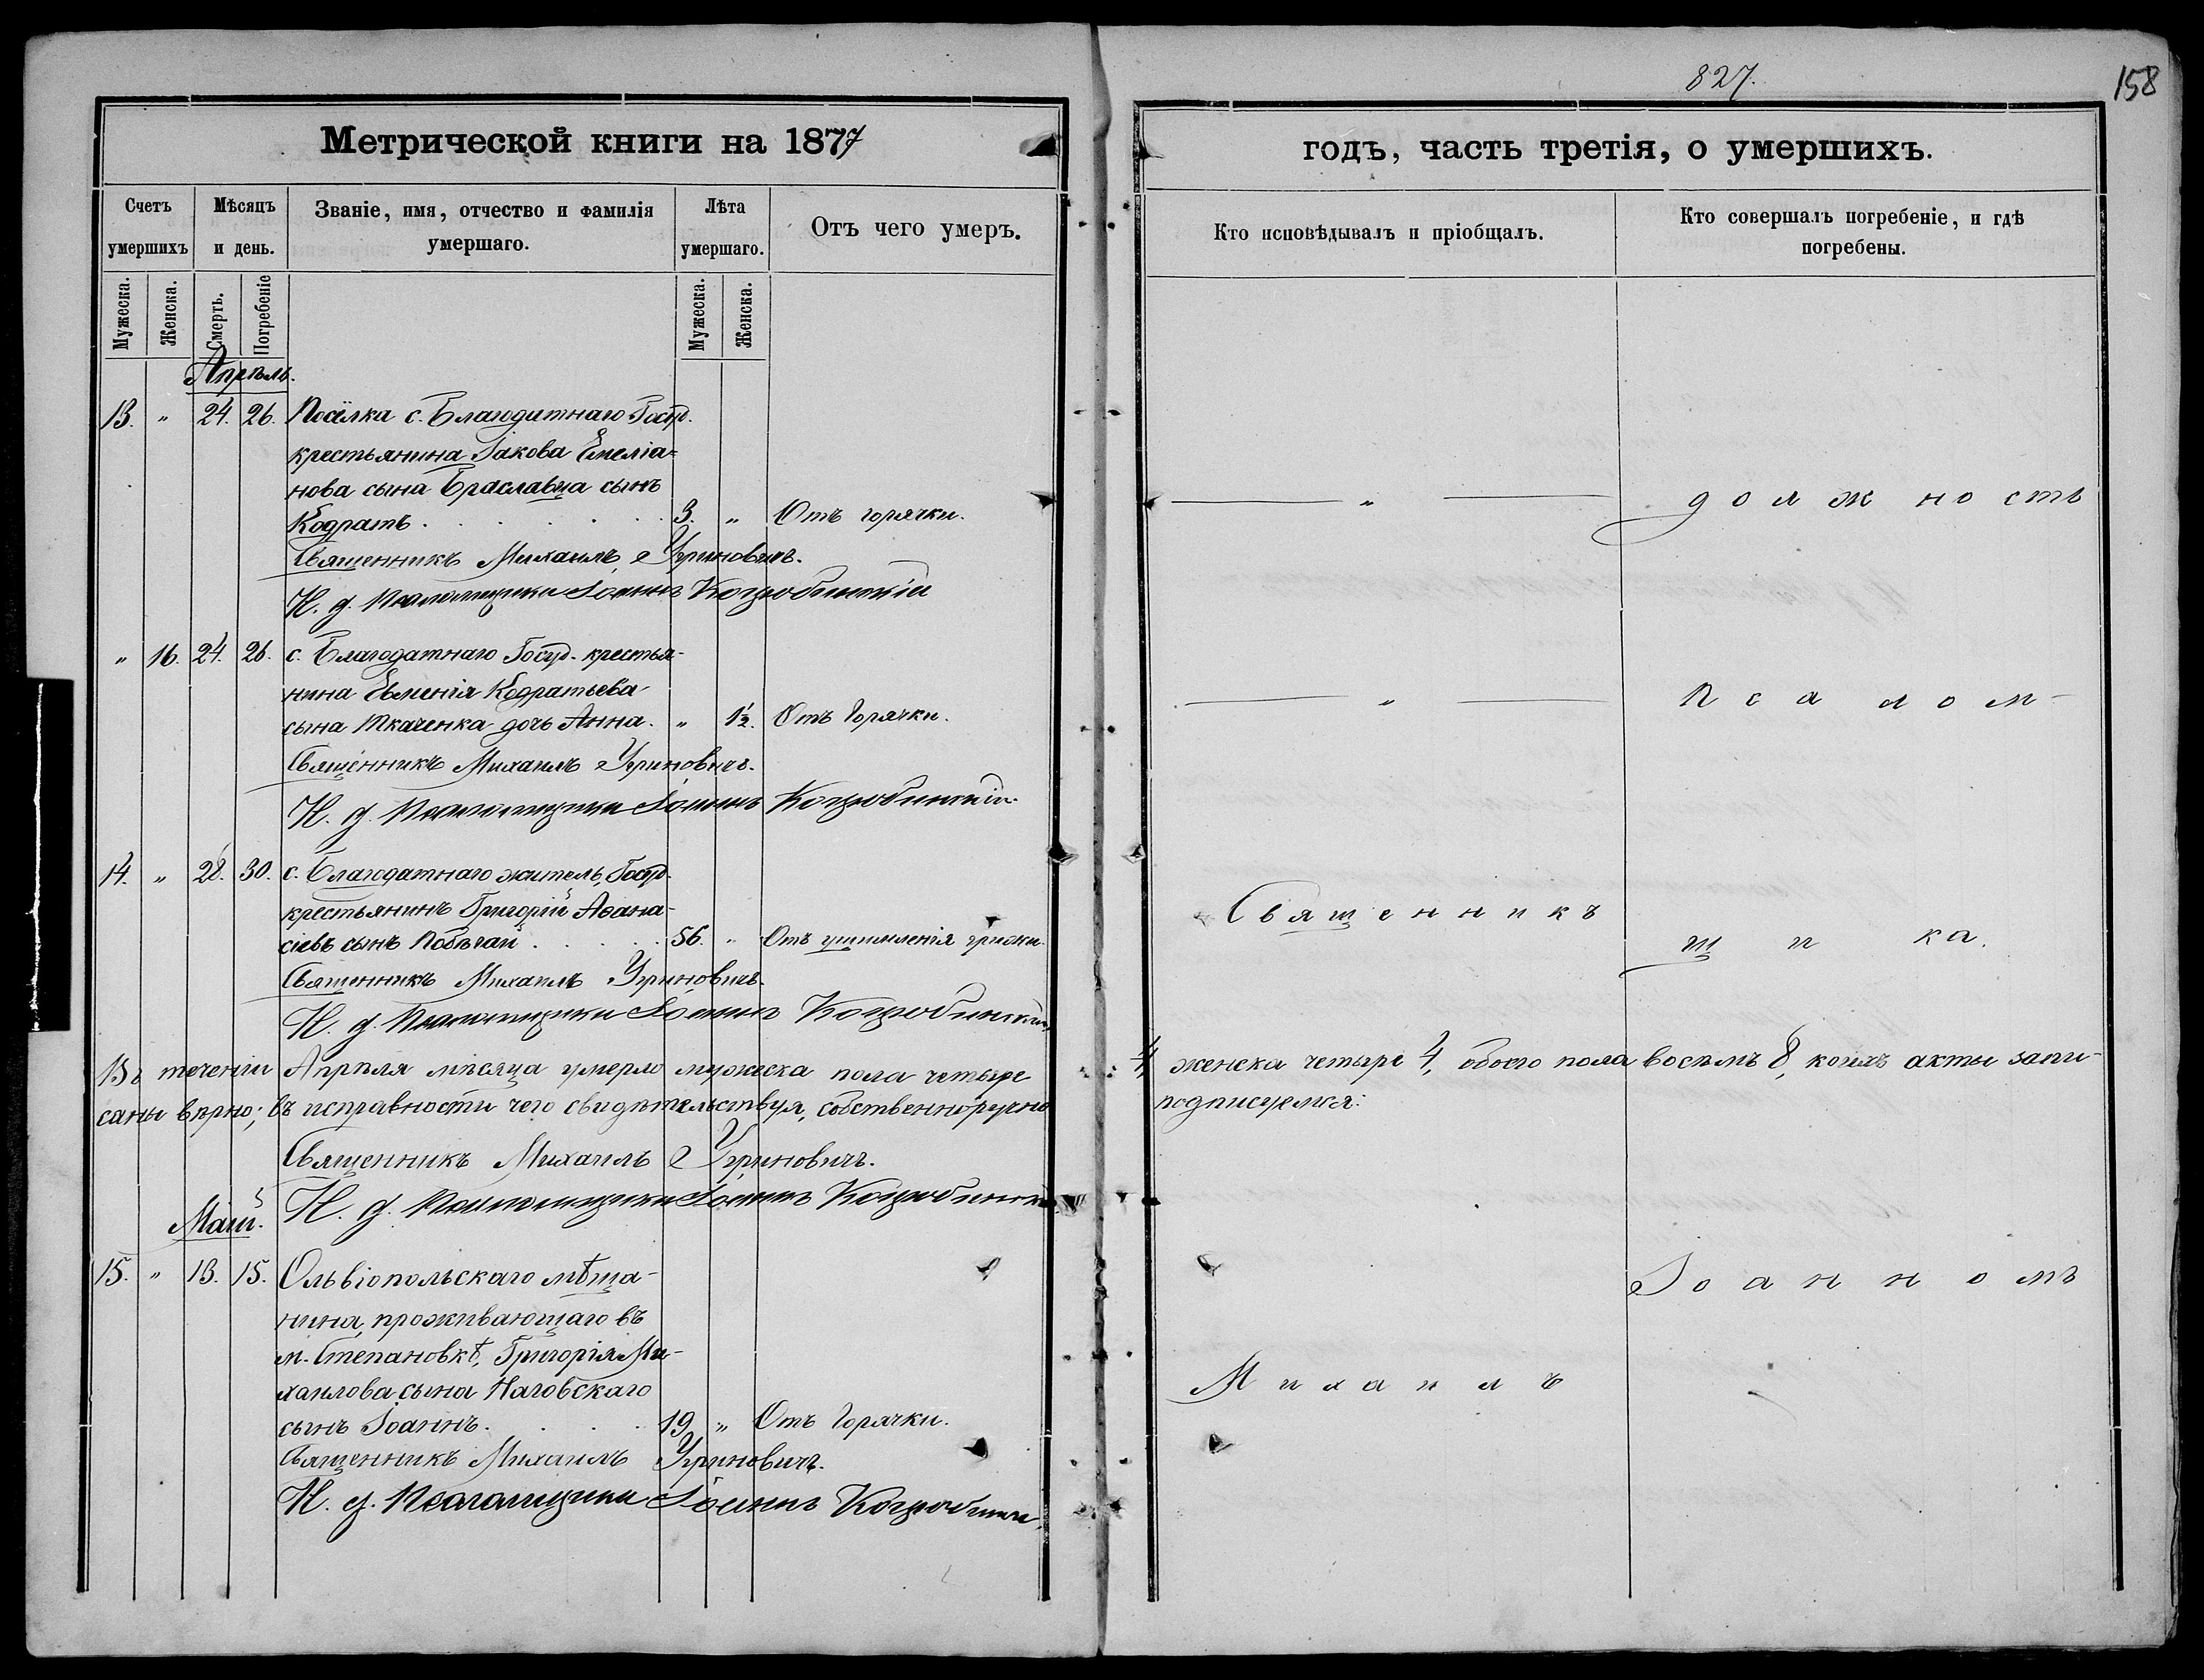 827.
158
Метрической книги на 1877
годъ, часть третія, о умершихъ.
Счетъ умершихъ
Мѣсяцъ и день.
Званіе, имя, отчество и фамилія умершаго.
Лѣта умершаго.
Отъ чего умеръ.
Кто исповѣдывалъ и пріобщалъ.
Кто совершалъ погребеніе, и гдѣ погребены.
Мужеска.
Женска.
Смерть.
Погребеніе
Мужеска.
Женска.
Апрѣль.
13. " 24. 26. Посёлка с. Благодатнаго Госуд.
крестьянина Іакова Емеліа-
нова сына Браславца сынъ
Кодратъ. 3. " Отъ горячки.
Священникъ Михаилъ Угриновичъ.
И. д. Псаломщика Іоаннъ Коцюбинскій
" 16. 24. 26. с. Благодатнаго Госуд. крестья-
нина Евменія Кодратьева
сына Ткаченка дочь Анна. " 1½. Отъ Горячки.
Священникъ Михаилъ Угриновичъ.
И. д. Псаломщика Іоаннъ Коцюбинскій.
14. " 28. 30. с. Благодатнаго житель, Госуд.
крестьянинъ Григорій Аѳана-
сіевъ сынъ Побѣгай 56. " Отъ ущемленія грыжи.
Священникъ Михаилъ Угриновичъ.
И. д. Псаломщика Іоаннъ Коцюбинскій
Въ теченіи Апрѣля мѣсяца умерло мужеска пола четыре 4, женска четыре 4, обоего пола восемъ 8, коихъ акты запи-
саны вѣрно; въ исправности чего свидѣтельствуя, собственноручно подписуемся:
Священникъ Михаилъ Угриновичъ.
И. д. Псаломщика Іоаннъ Коцюбинскій
Май.
15. " 13. 15. Ольвіопольскаго мѣща-
нина, проживающаго въ
м. Степановкѣ, Григорія Ми-
хаилова сына Наговскаго
сынъ Іоаннъ. 19 " Отъ Горячки.
Священникъ Михаилъ Угриновичъ.
И. д. Псаломщика Іоаннъ Коцюбинскій
" должность
" Псалом-
Священникъ
щика.
Іоанномъ
Михаилъ